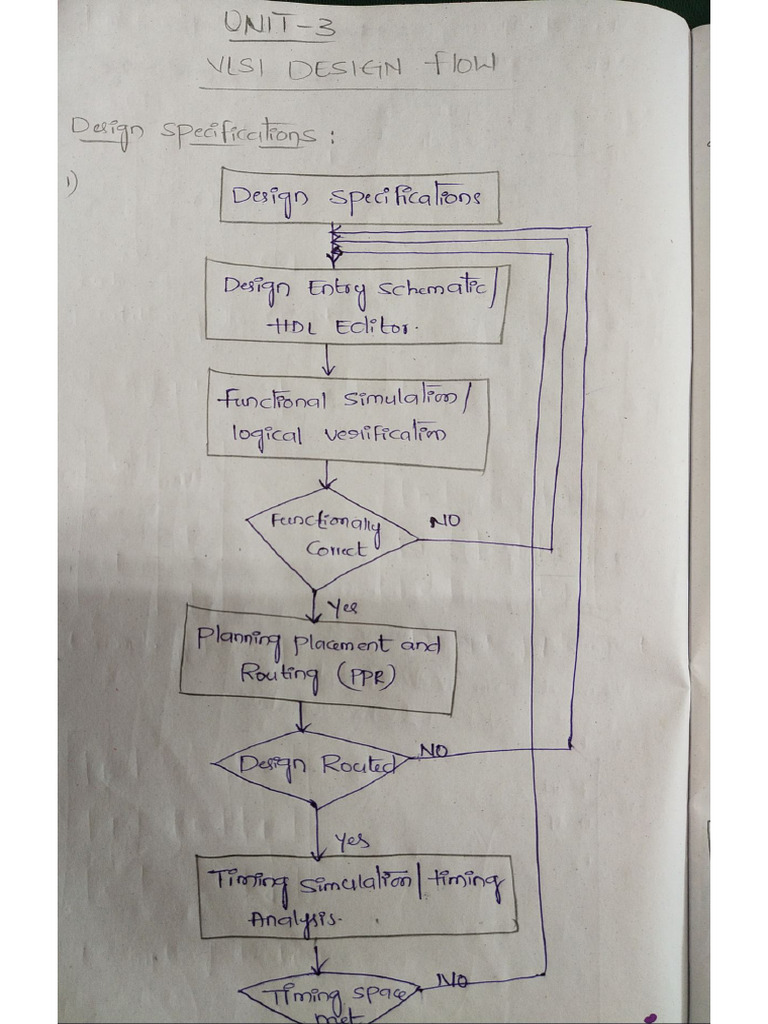 UNIT-3
VLSI DESIGN FLOW
Design Specifications :
1)
Design Specifications
Design Entry Schematic/
HDL Editor.
Functional Simulation/
logical verification
Functionally
Correct
NO
Yes
Planning Placement and
Routing (PPR)
Design Routed
NO
Yes
Timing Simulation/timing
Analysis.
Timing Space
met
NO